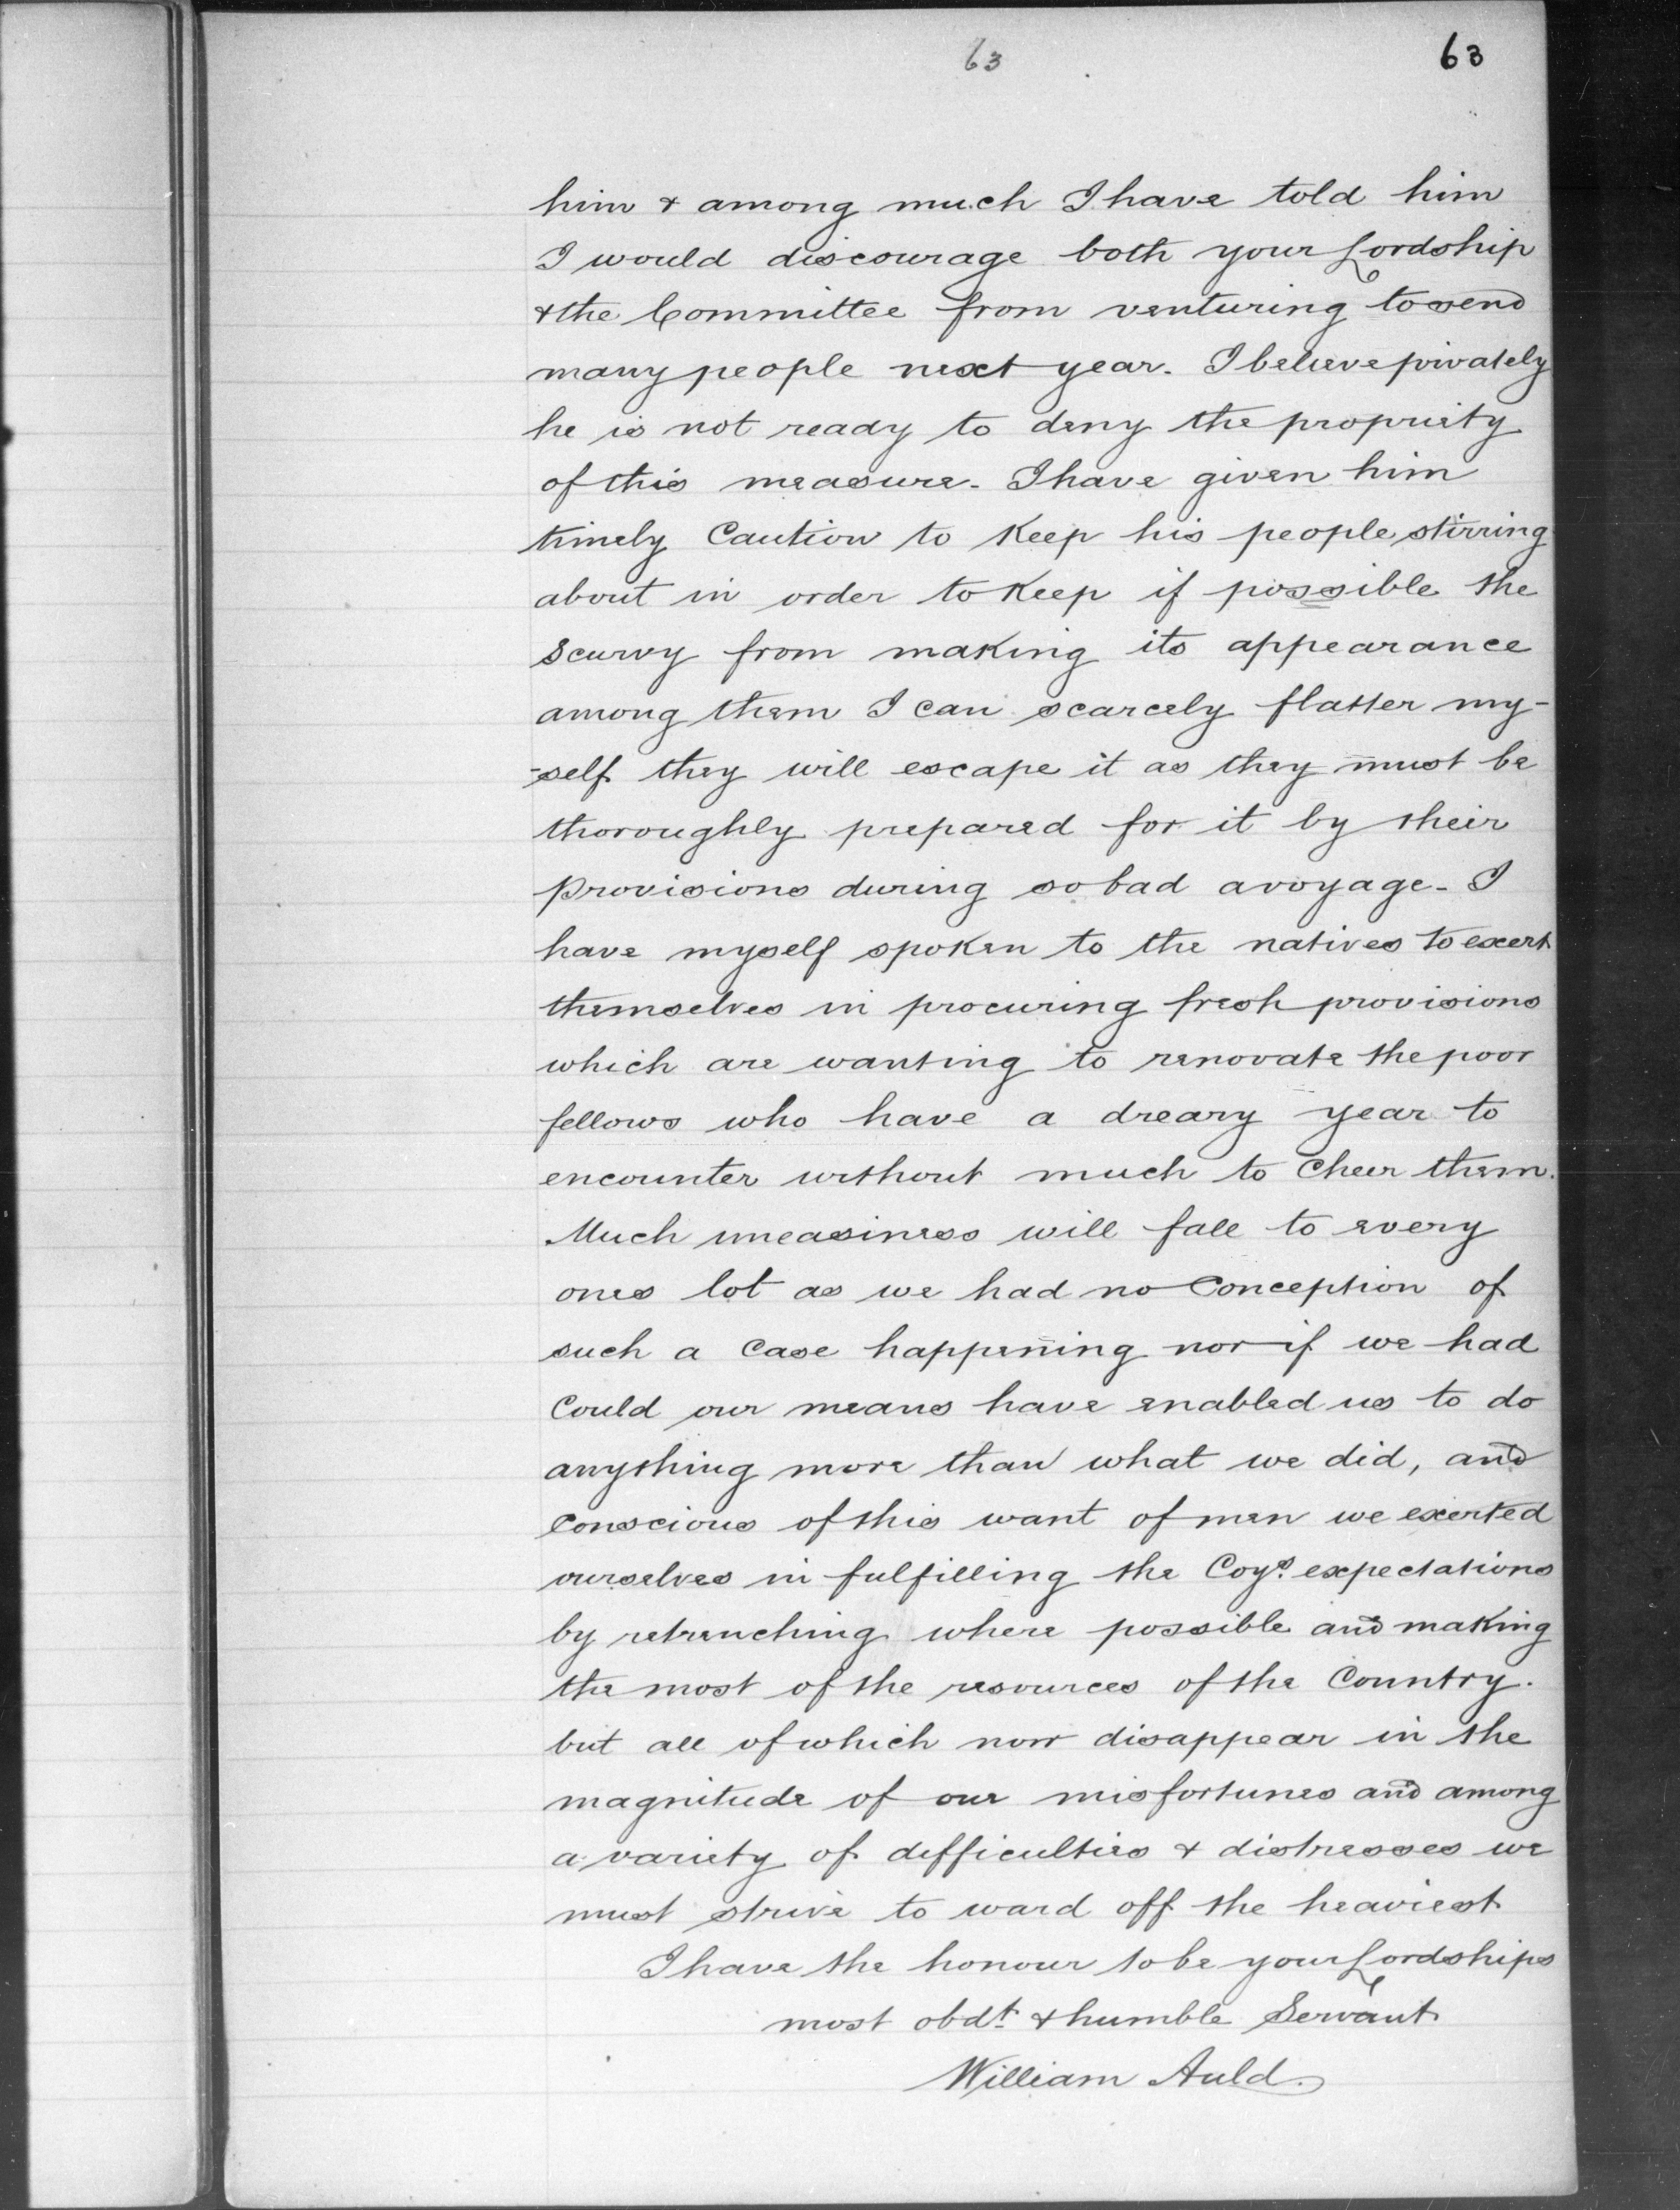 63 63
him & among much I have told him
I would discourage both your Lordship
& the Committee from venturing to send
many people next year. I believe privately
he is not ready to deny the propriety
of this measure - I have given him
timely Caution to Keep his people stirring
about in order to Keep if possible the
scurvy from making its appearance
among them I can scarcely flatter my-
-self they will escape it as they must be
thoroughly prepared for it by their
provisions during so bad a voyage - I
have myself spoken to the natives to exert
themselves in procuring fresh provisions
which are wanting to renovate the poor
fellows who have a dreary year to
encounter without much to Cheer them.
Much uneasiness will fall to every
ones lot as we had no Conception of
such a Case happening nor if we had
Could our means have enabled us to do
anything more than what we did, and
Conscious of this want of men we exerted
ourselves in fulfilling the Coys. expectations
by retrenching where possible and making
the most of the resources of the Country.
but all of which now disappear in the
magnitude of our misfortunes and among
a variety of difficulties & distresses we
must strive to ward off the heaviest
I have the honour to be your Lordships
most obdt. & humble Servant
William Auld.